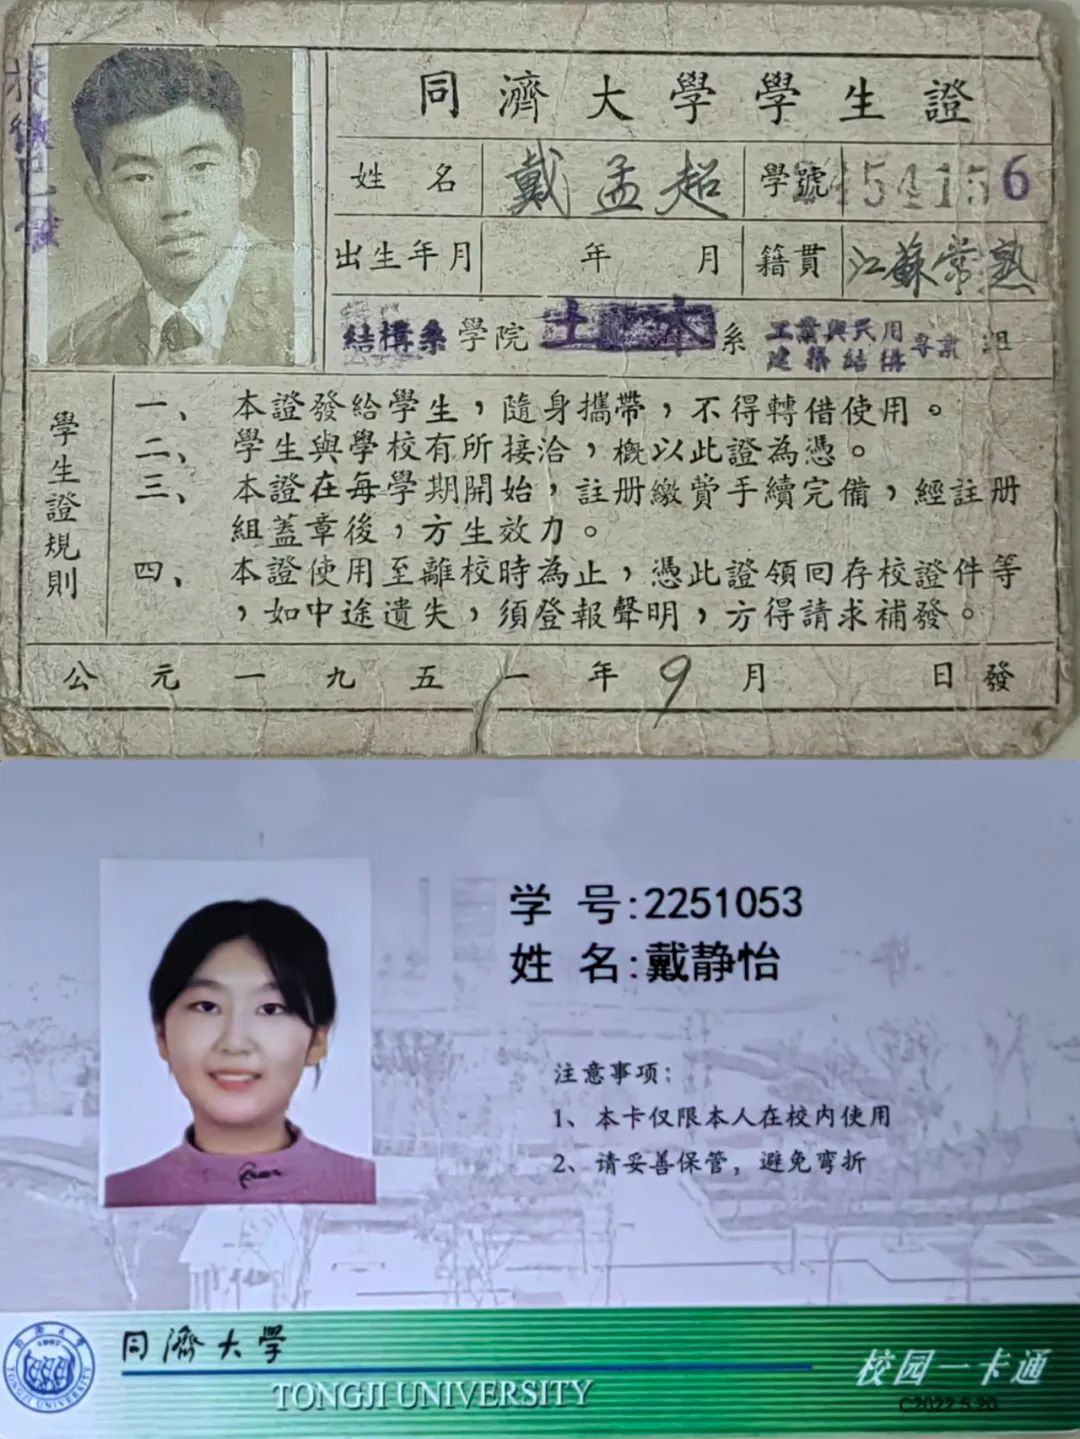 同濟大學學生證
姓名 戴孟超 學號 5415 6
出生年月 年 月 籍貫 江蘇常熟
結構系 學院 土木 系 工業與民用建築結構專業 組
學生證規則
一、本證發給學生，隨身攜帶，不得轉借使用。
二、學生與學校有所接洽，概以此證為憑。
三、本證在每學期開始，註册繳費手續完備，經註册
組蓋章後，方生效力。
四、本證使用至離校時為止，憑此證領回存校證件等
，如中途遺失，須登報聲明，方得請求補發。
公元一九五一年9月 日發
学 号:2251053
姓 名:戴静怡
注意事项：
1、本卡仅限本人在校内使用
2、请妥善保管，避免弯折
同濟大學
TONGJI UNIVERSITY
校园一卡通
C2022.5.20
TONGJI UNIVERSITY